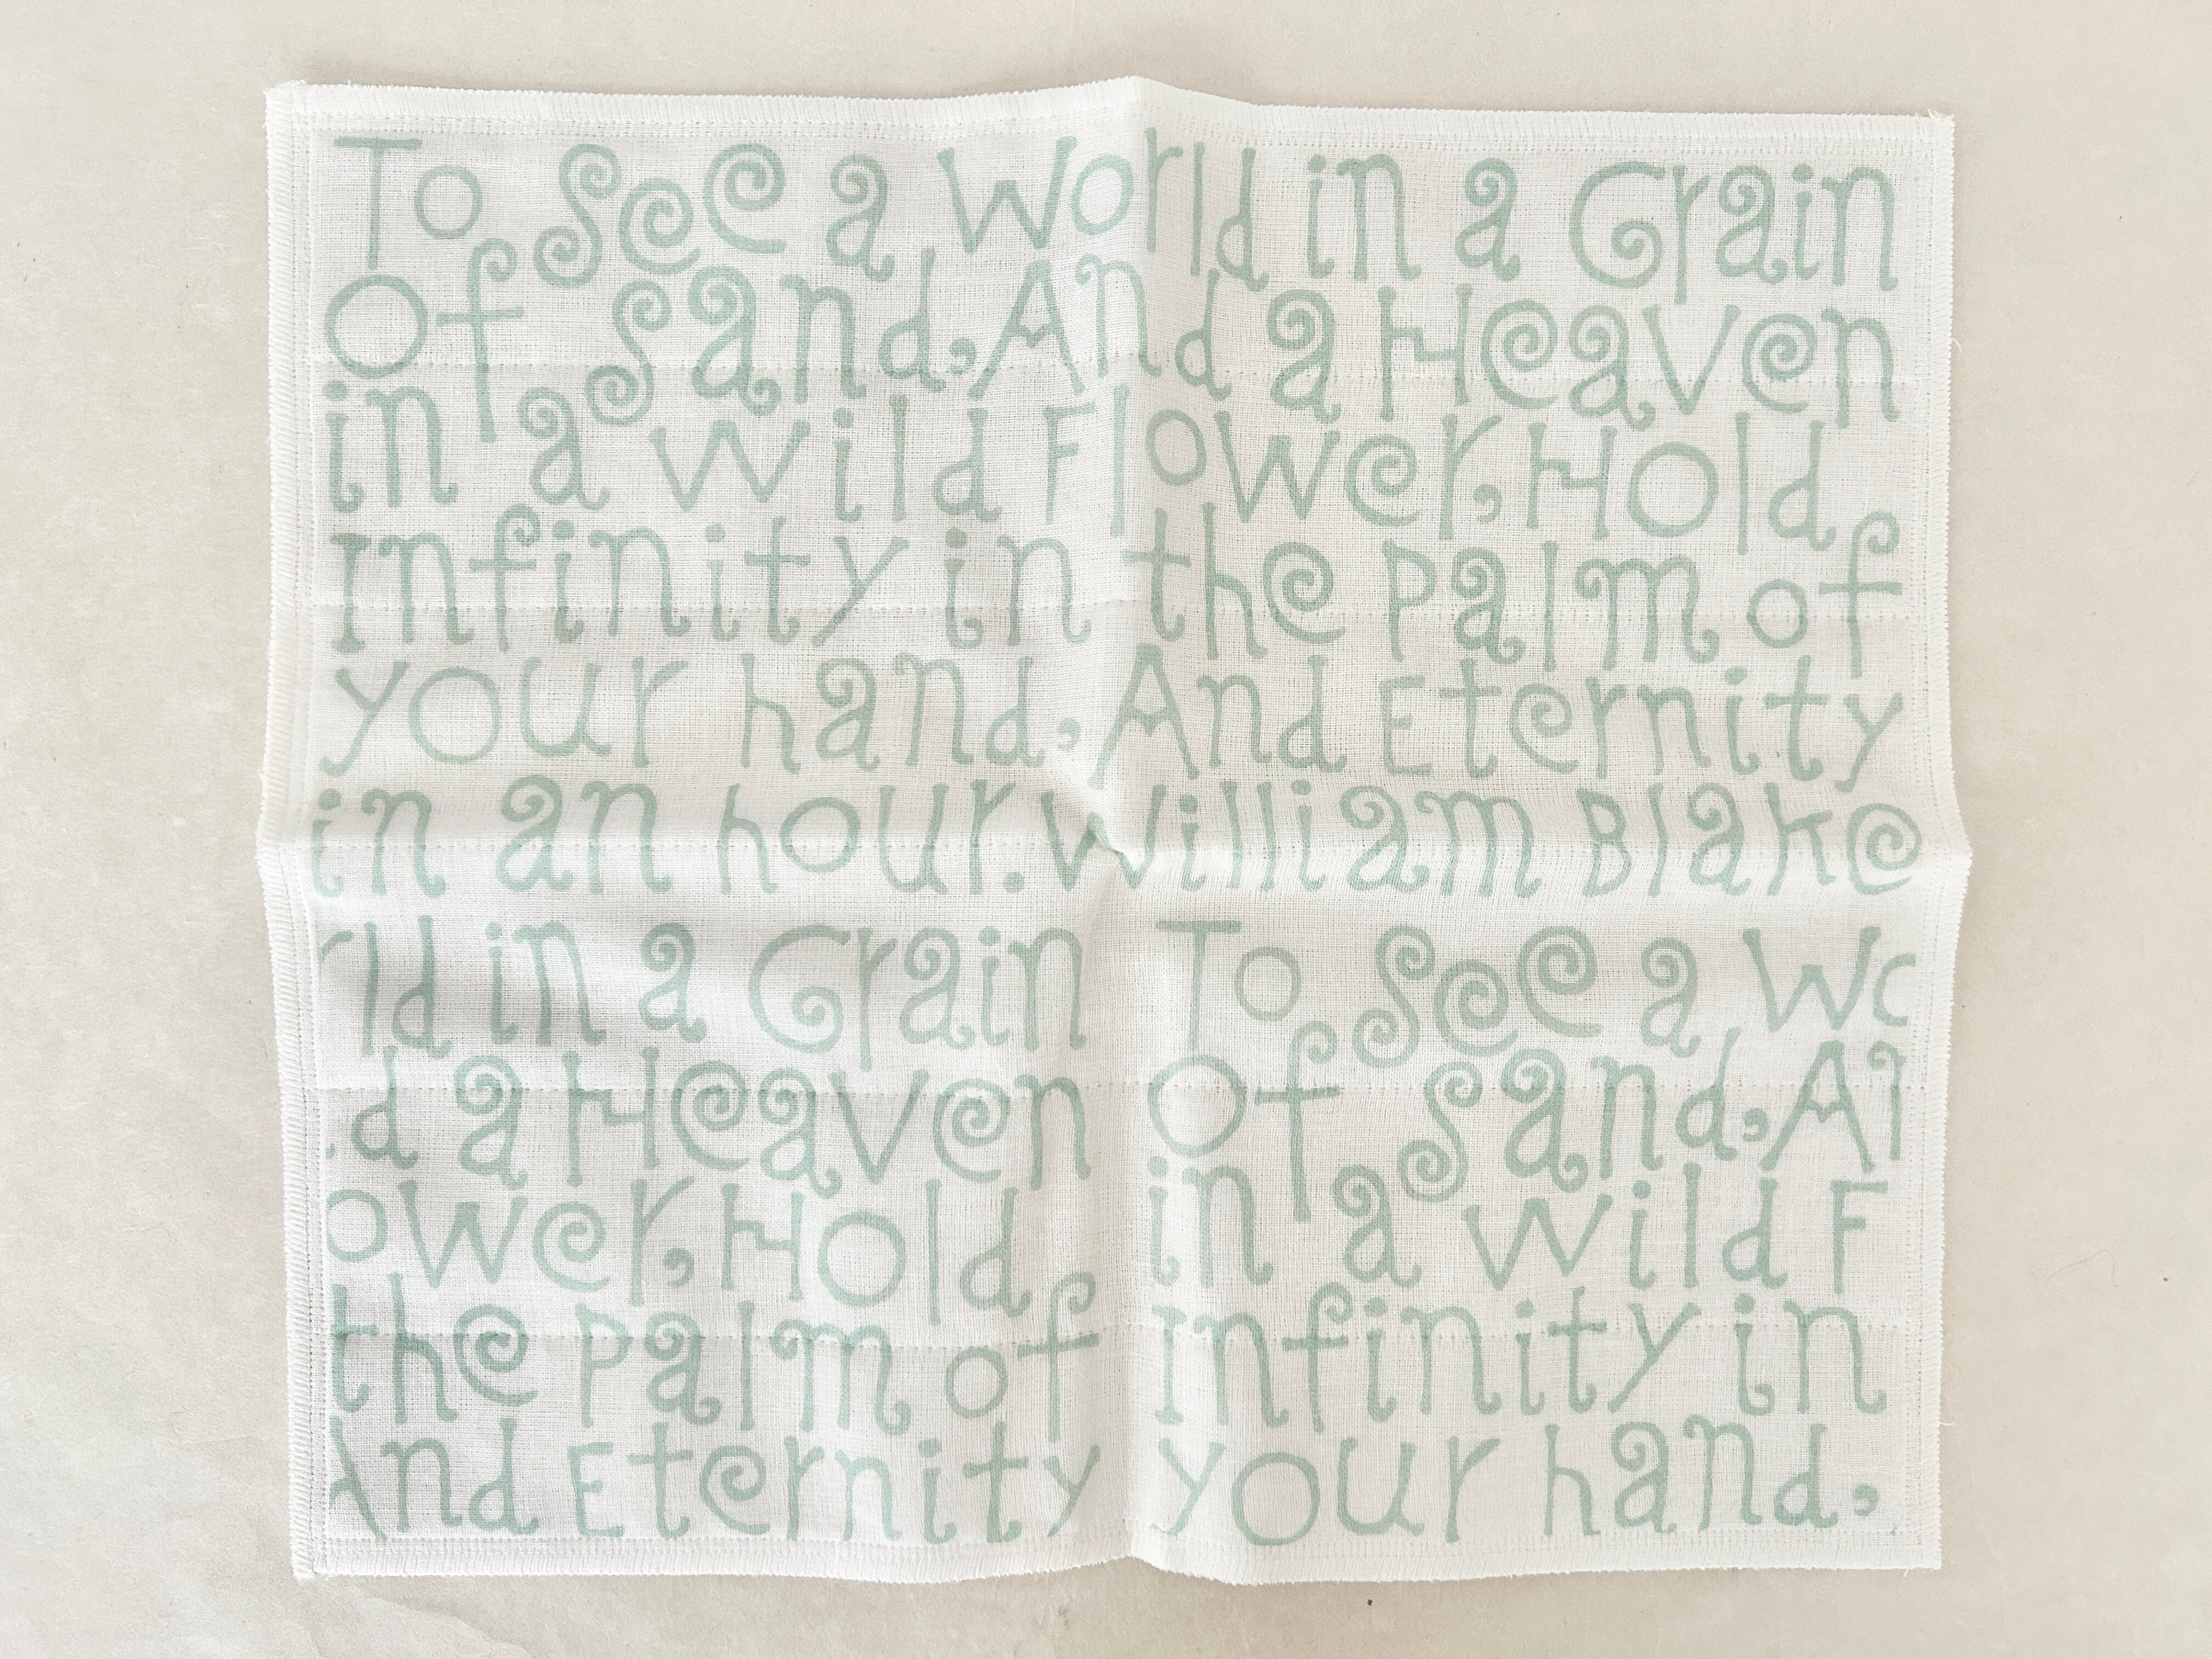 To see a World in a Grain
Of Sand, And a Heaven
in a Wild Flower, Hold
Infinity in the palm of
your hand, And Eternity
in an hour. William Blake
rld in a Grain To see a Wo
d a Heaven Of Sand, An
ower, Hold in a Wild F
the palm of Infinity in
And Eternity your hand,